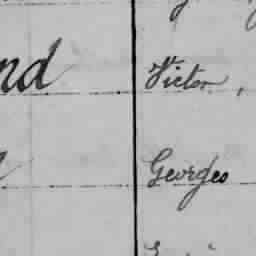 nd Victor,
Georges